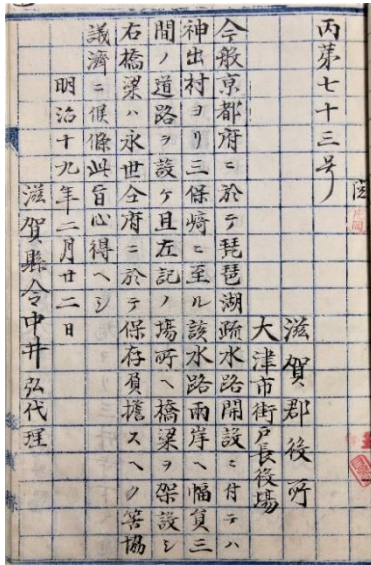 丙第七十三号
滋賀郡役所
大津市街戸長役場
今般京都府ニ於テ琵琶湖疏水路開設ニ付テハ
神出村ヨリ三保崎ニ至ル該水路両岸ヘ幅員三
間ノ道路ヲ設ケ且左記ノ場所ヘ橋梁ヲ架設シ
右橋梁ハ永世仝府ニ於テ保存負擔スヘク筈協
議済ニ候條此旨心得ヘシ
明治十九年二月廿二日
滋賀縣令中井弘代理